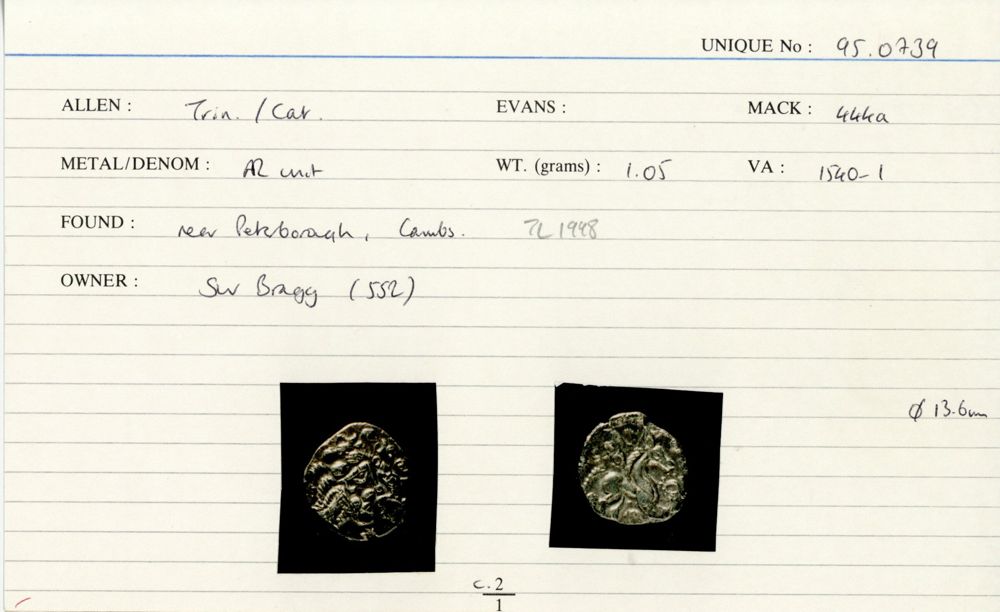 UNIQUE No : 95.0739
ALLEN : Trin. / Cat. EVANS : MACK : 444a
METAL/DENOM : AR unit WT. (grams) : 1.05 VA : 1540-1
FOUND : near Peterborough, Cambs. TL 1998
OWNER : Bragg (552)
Ø 13.6mm
c. 2
1